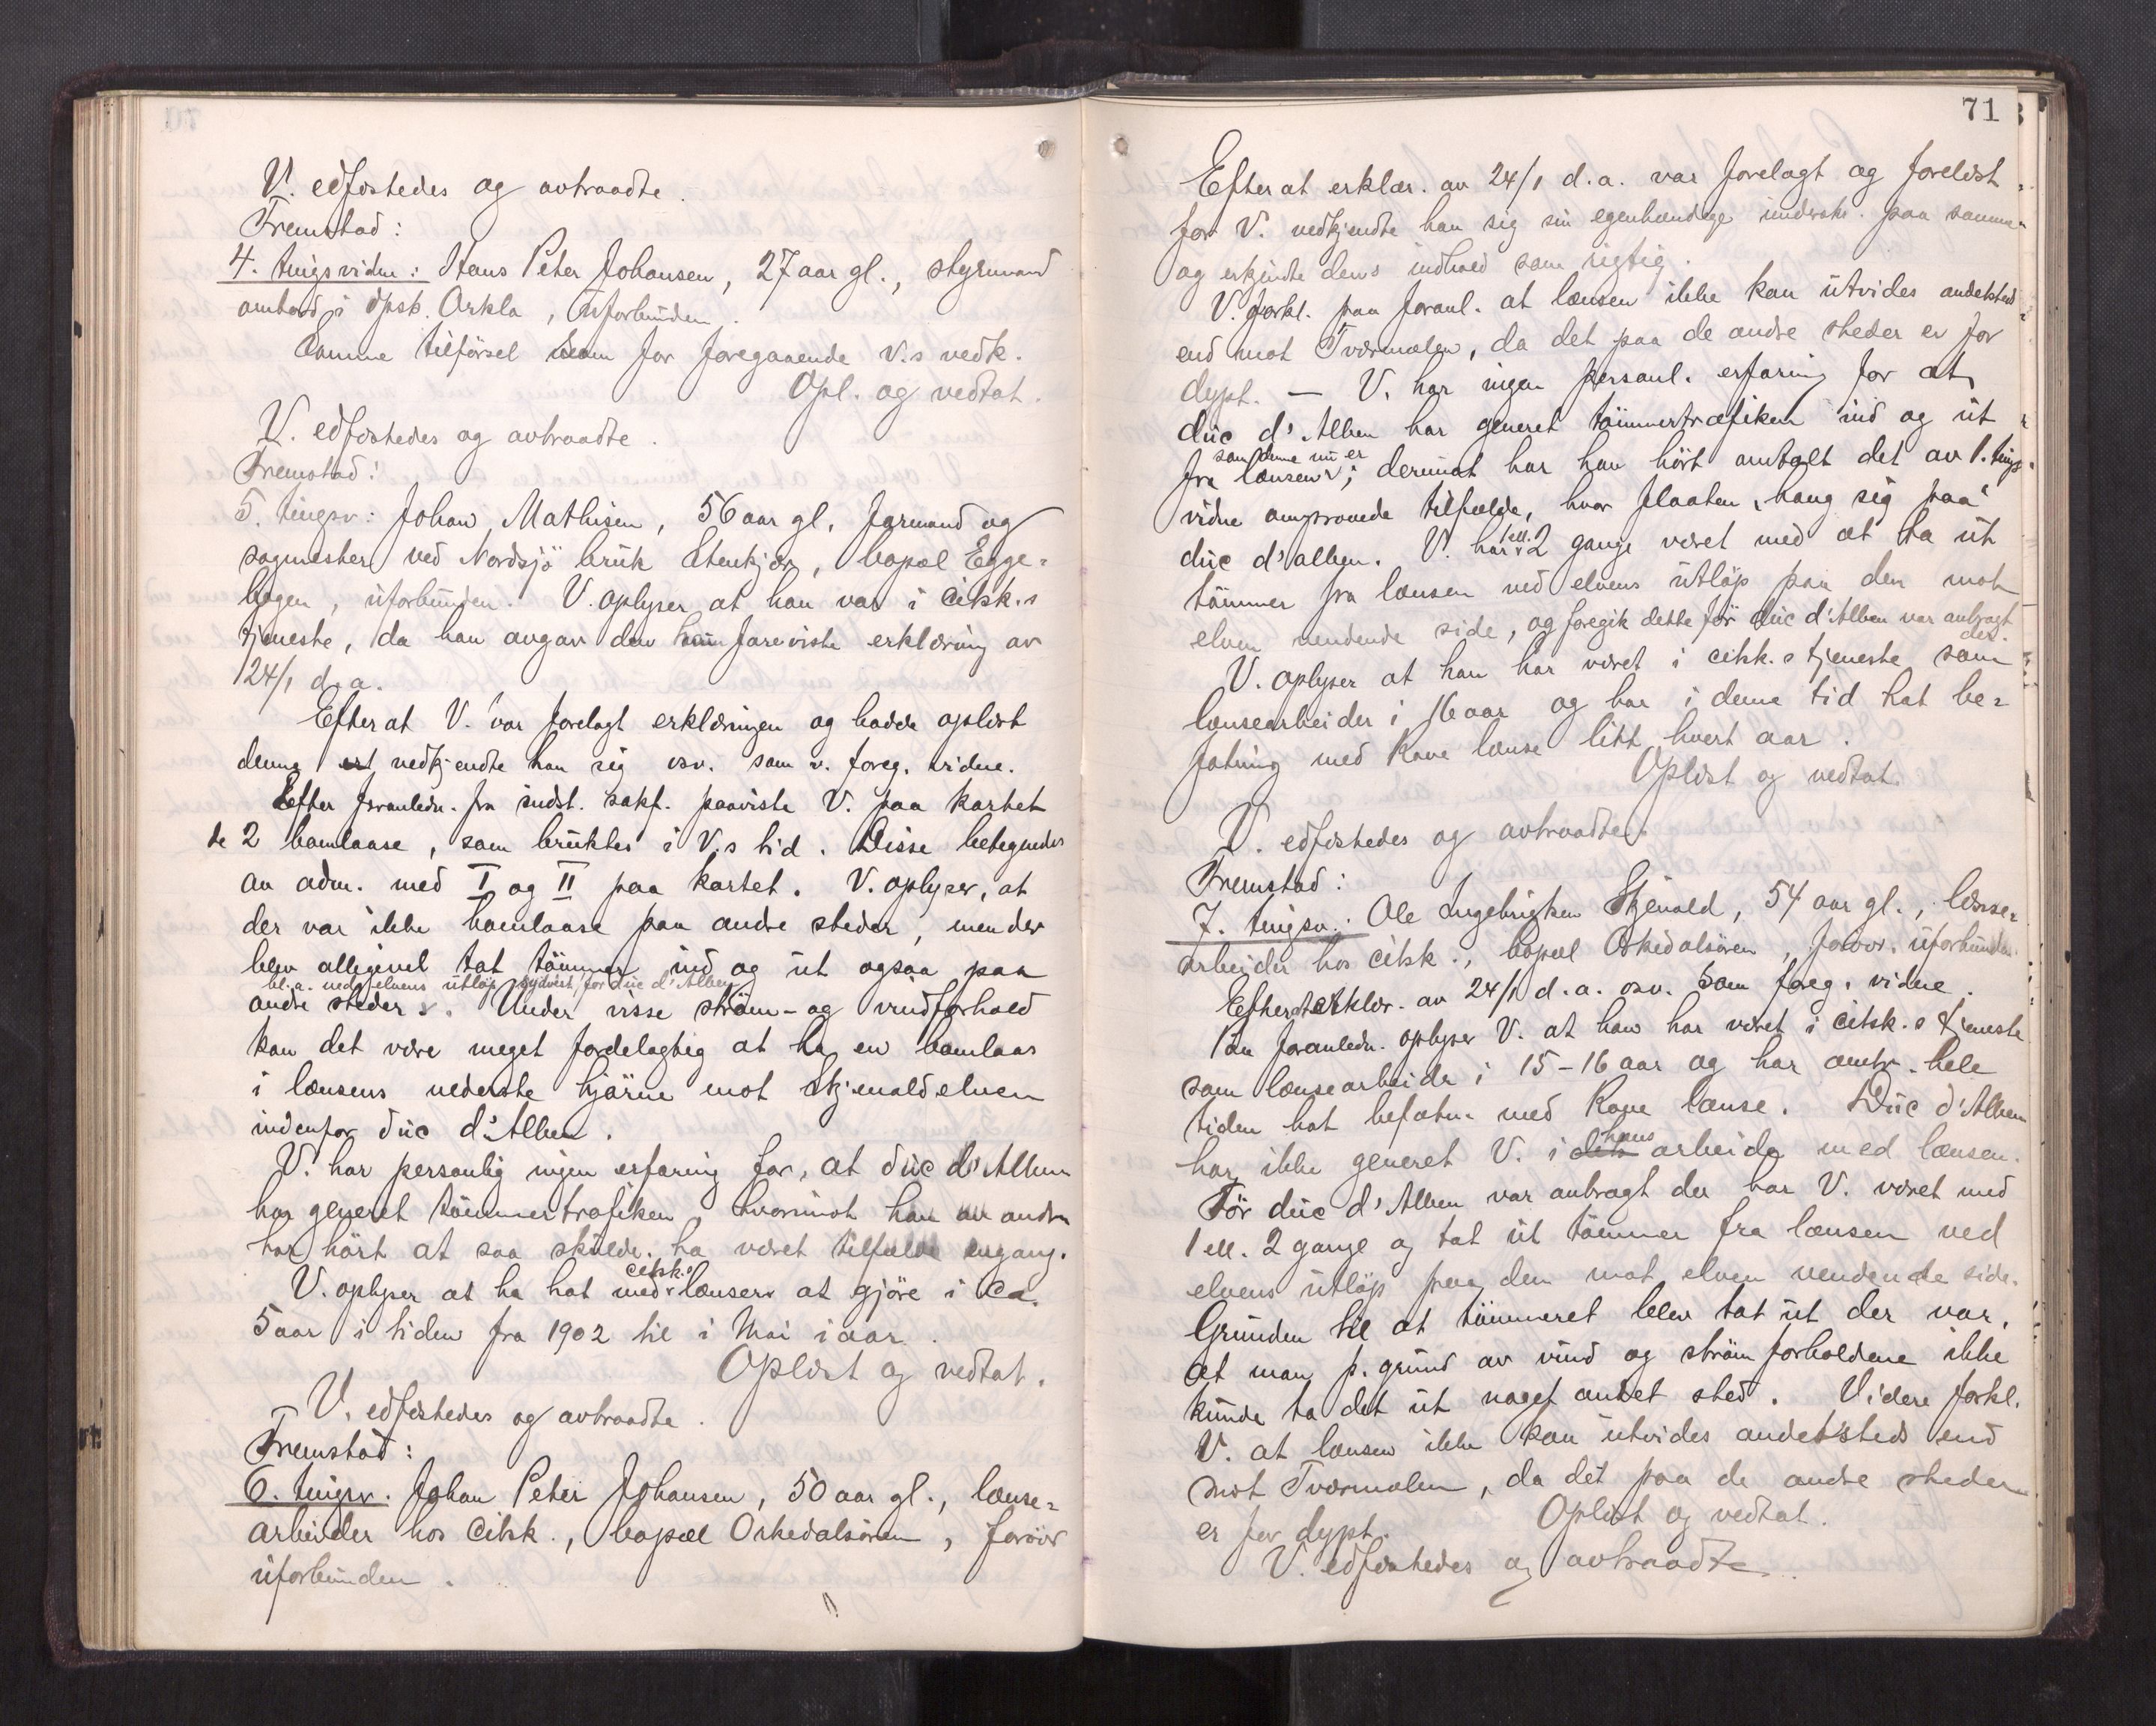 V. edfæstedes og avtraadte.
Fremstod:
4. tingsvidne: Hans Peter Johansen, 27 aar gl., styrmand
ombord i dpsk. Orkla, uforbunden.
Samme tilførsel som for foregaaende V.s vedk.
Opl. og vedtat.
V. edfæstedes og avtraadte.
Fremstod:
5. tingsv: Johan Mathisen, 56 aar gl. formand og
sagmester ved Nordsjø bruk Stenkjær, bopæl Egge-
bogen, uforbunden. V. oplyser at han var i citsk.s
tjeneste, da han avgav den ham foreviste erklæring av
24/1 d.a.
Efterat V. var forelagt erklæringen og hadde oplæst
denne vedkjendte han sig osv. som v. foreg. vidne.
Efter foranledn. fra indst. sakf. paaviste V. paa kartet
de 2 bomlaase, som bruktes i V.s tid. Disse betegnedes
av adm. med I og II paa kartet. V. oplyser, at
der var ikke bomlaase paa andre steder, men der
blev alligevel tat tømmer ind og ut ogsaa paa
bl.a. ved elvens utløp sydvest for duc d'Alben
andre steder v. Under visse strøm- og vindforhold
kan det være meget fordelagtig at ha en bomlaas
i lænsens nederste hjørne mot Skjenaldelven
indenfor duc d'Alben.
V. har personlig ingen erfaring for, at duc d'Alben
har generet tømmertrafiken, hvorimot han av andre
har hørt at saa skulde ha været tilfælde engang.
citsk.s
V. oplyser at ha hat med v lænser at gjøre i ca.
5 aar i tiden fra 1902 til i Mai i aar.
Oplæst og vedtat.
V. edfæstedes og avtraadte.
Fremstod:
6. tingsv. Johan Peter Johansen, 50 aar gl., lænse-
arbeider hos citsk., bopæl Orkedalsøren, forøvr.
uforbunden.
71
Efterat erklær. av 24/1 d.a. var forelagt og forelæst
for V. vedkjendte han sig sin egenhændige underskr. paa samme
og erkjendte dens indhold som rigtig.
V. forkl. paa foranl. at lænsen ikke kan utvides andetsteds
end mot Tværmolen, da det paa de andre steder er for
dypt. — V. har ingen personl. erfaring for at
duc d'Alben har generet tømmertrafiken ind og ut
som denne nu er
fra lænsen v; derimot har han hørt omtalt det av 1. tings-
vidne omprovede tilfælde, hvor flaaten "hang sig paa"
duc d'alben. V. har 1 ell. 2 gange været med at ta ut
tømmer fra lænsen ved elvens utløp paa den mot
elven vendende side, og foregik dette før duc d'Alben var anbragt
der.
V. oplyser at han har været i citsk.s tjeneste som
lænsearbeider i 16 aar og har i denne tid hat be-
fatning med Rove lænse litt hvert aar.
Oplæst og vedtat.
V. edfæstedes og avtraadte.
Fremstod:
7. tingsv. Ole Ingebrigtsen Skjenald, 54 aar gl., lænse-
arbeider hos citsk., bopæl Orkedalsøren, forøvr. uforbunden.
Efterat erklær. av 24/1 d.a. osv. som foreg. vidne.
Paa foranledn. oplyser V. at han har været i citsk.s tjeneste
som lænsearbeider i 15-16 aar og har omtr. hele
tiden hat befatn. med Rove lænse. Duc d'Alben
hans
har ikke generet V. i arbeide med lænsen.
Før duc d'Alben var anbragt der har V. været med
1 ell. 2 gange og tat ut tømmer fra lænsen ved
elvens utløp paa den mot elven vendende side.
Grunden til at tømmeret blev tat ut der var,
at man p. grund av vind og strømforholdene ikke
kunde ta det ut noget andet sted. Videre forkl.
V. at lænsen ikke kan utvides andetsteds end
mot Tværmolen, da det paa de andre steder
er for dypt.
Oplæst og vedtat.
V. edfæstedes og avtraadte.